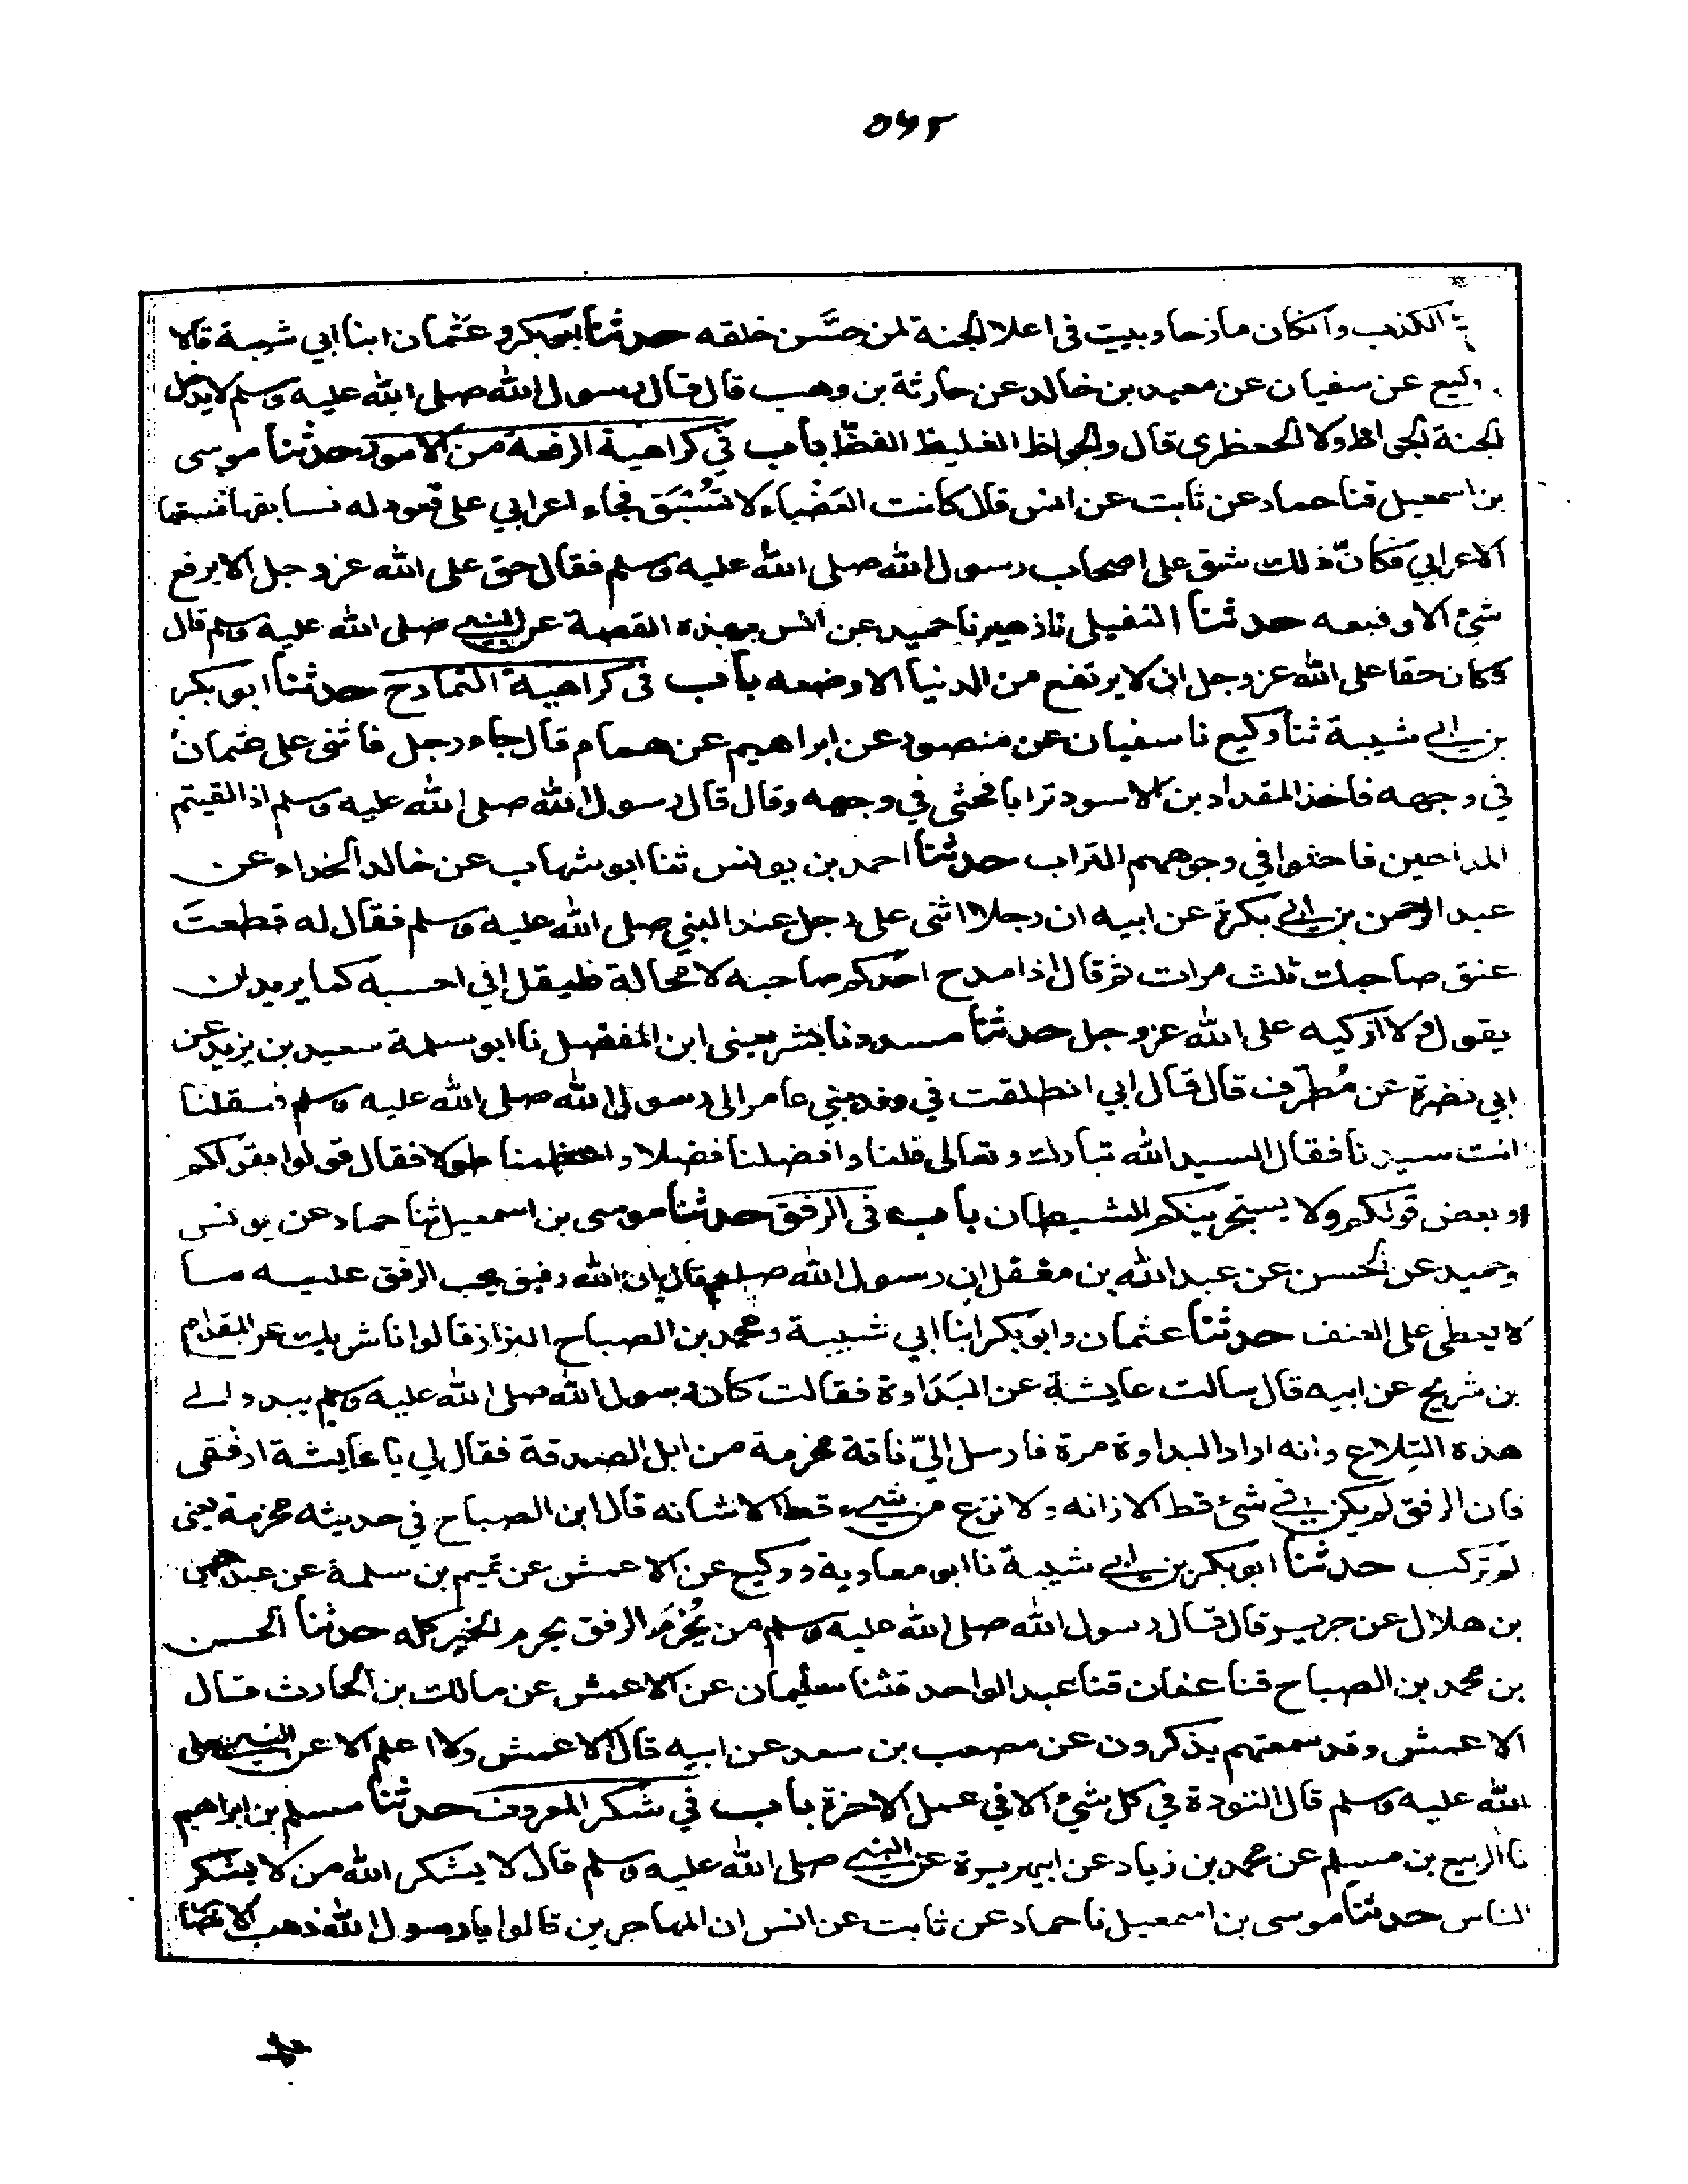 ٥٦٢
الكذب وان كان مازحا وببيت فى اعلا الجنة لمن حسَّن خلقه حدثنا ابو بكر وعثمان ابنا ابي شيبة قالا
وكيع عن سفيان عن معبد بن خالد عن حارثة بن وهب قال قال رسول الله صلى الله عليه وسلم لا يدخل
الجنة الجواظ ولا الجعظرى قال والجواظ الغليظ الفظّ باب في كراهية الرفعة من الامور حدثنا موسى
بن اسمعيل قنا حماد عن ثابت عن انس قال كانت العَضْباء لا تُسْبَق فجاء اعرابي على قعود له فسابقها فسبقها
الاعرابي فكانّ ذلك شق على اصحاب رسول الله صلى الله عليه وسلم فقال حق على الله عز وجل الا يرفع
شئ الا وضعه حدثنا النفيلى نا زهير نا حميد عن انس بهذه القصة عن النبي صلى الله عليه وسلم قال
وكان حقا على الله عز وجل ان لا يرتفع من الدنيا الا وضعه باب فى كراهية التمادح حدثنا ابو بكر
بن ابي شيبة ثنا وكيع نا سفيان عن منصور عن ابراهيم عن همام قال جاء رجل فاثنى على عثمان
في وجهه فاخذ المقداد بن الاسود ترابا فحثى في وجهه وقال قال رسول الله صلى الله عليه وسلم اذا لقيتم
المداحين فاحثوا في وجوههم التراب حدثنا احمد بن يونس ثنا ابو شهاب عن خالد الحذاء عن
عبد الرحمن بن ابي بكرة عن ابيه ان رجلا اثنى على رجل عند النبي صلى الله عليه وسلم فقال له قطعتَ
عنق صاحبك ثلث مرات ثم قال اذا مدح احدكم صاحبه لا محالة فليقل اني احسبه كما يريد ان
يقول ولا ازكيه على الله عز وجل حدثنا مسدد نا بشر يعنى ابن المفضل نا ابو سلمة سعيد بن يزيد عن
ابي نضرة عن مُطرّف قال قال ابي انطلقت في وفد بني عامر الى رسول الله صلى الله عليه وسلم فقلنا
انت سيدنا فقال السيد الله تبارك وتعالى قلنا وافضلنا فضلا واعظمنا طولا فقال قولوا بقولكم
او بعض قولكم ولا يستجرينكم الشيطان باب فى الرفق حدثنا موسى بن اسمعيل ثنا حماد عن يونس
وحميد عن الحسن عن عبد الله بن مغفل ان رسول الله صلعم قال ان الله رفيق يحب الرفق عليه ما
لا يعطى على العنف حدثنا عثمان وابو بكر ابنا ابي شيبة ومحمد بن الصباح البزاز قالوا نا شريك عن المقدام
بن شريح عن ابيه قال سالت عايشة عن البَدَاوة فقالت كان رسول الله صلى الله عليه وسلم يبدو الى
هذه التِلاع وانه اراد البداوة مرة فارسل اليّ ناقة محرمة من ابل الصدقة فقال لي يا عايشة ارفقى
فان الرفق لم يكن في شئ قط الا زانه ولا نزع من شيء قط الا شانه قال ابن الصباح في حديثه محرمة يعنى
لم تركب حدثنا ابو بكر بن ابي شيبة نا ابو معاوية ووكيع عن الاعمش عن تميم بن سلمة عن عبد الرحمن
بن هلال عن جرير قال قال رسول الله صلى الله عليه وسلم من يُحْرَم الرفق يحرم الخير كله حدثنا الحسن
بن محمد بن الصباح قنا عفان قنا عبد الواحد قثنا سليمان عن الاعمش عن مالك بن الحارث قال
الاعمش وقد سمعتهم يذكرون عن مصعب بن سعد عن ابيه قال الاعمش ولا اعلم الا عن النبي صلى
الله عليه وسلم قال التؤدة في كل شئ الا في عمل الاخرة باب في شكر المعروف حدثنا مسلم بن ابراهيم
نا الربيع بن مسلم عن محمد بن زياد عن ابي هريرة عن النبي صلى الله عليه وسلم قال لا يشكر الله من لا يشكر
الناس حدثنا موسى بن اسمعيل نا حماد عن ثابت عن انس ان المهاجرين قالوا يا رسول الله ذهب الانصار